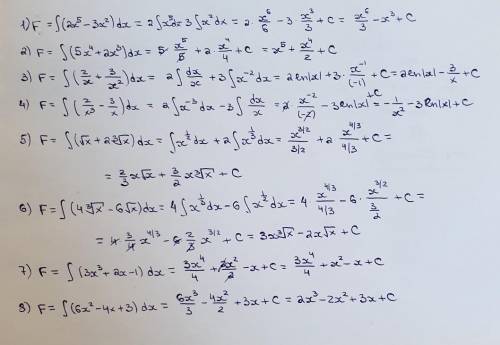 1) F = ∫(2x⁵ - 3x²)dx = 2∫x⁵dx - 3∫x²dx = 2 · x⁶/6 - 3 x³/3 + C = x⁶/3 - x³ + C
2) F = ∫(5x⁴ + 2x³)dx = 5 · x⁵/5 + 2 · x⁴/4 + C = x⁵ + x⁴/2 + C
3) F = ∫(2/x + 3/x²)dx = 2∫dx/x + 3∫x⁻²dx = 2ln|x| + 3 · x⁻¹/(-1) + C = 2ln|x| - 3/x + C
4) F = ∫(2/x³ - 3/x)dx = 2∫x⁻³dx - 3∫dx/x = 2 x⁻²/(-2) - 3ln|x| + C = -1/x² - 3ln|x| + C
5) F = ∫(√x + 2∛x)dx = ∫x^(1/2)dx + 2∫x^(1/3)dx = x^(3/2)/(3/2) + 2 x^(4/3)/(4/3) + C =
= 2/3 x√x + 3/2 x∛x + C
6) F = ∫(4∛x - 6√x)dx = 4∫x^(1/3)dx - 6∫x^(1/2)dx = 4 · x^(4/3)/(4/3) - 6 · x^(3/2)/(3/2) + C =
= 4 · 3/4 x^(4/3) - 6 2/3 x^(3/2) + C = 3x∛x - 2x√x + C
7) F = ∫(3x³ + 2x - 1)dx = 3x⁴/4 + 2x²/2 - x + C = 3x⁴/4 + x² - x + C
8) F = ∫(6x² - 4x + 3)dx = 6x³/3 - 4x²/2 + 3x + C = 2x³ - 2x² + 3x + C